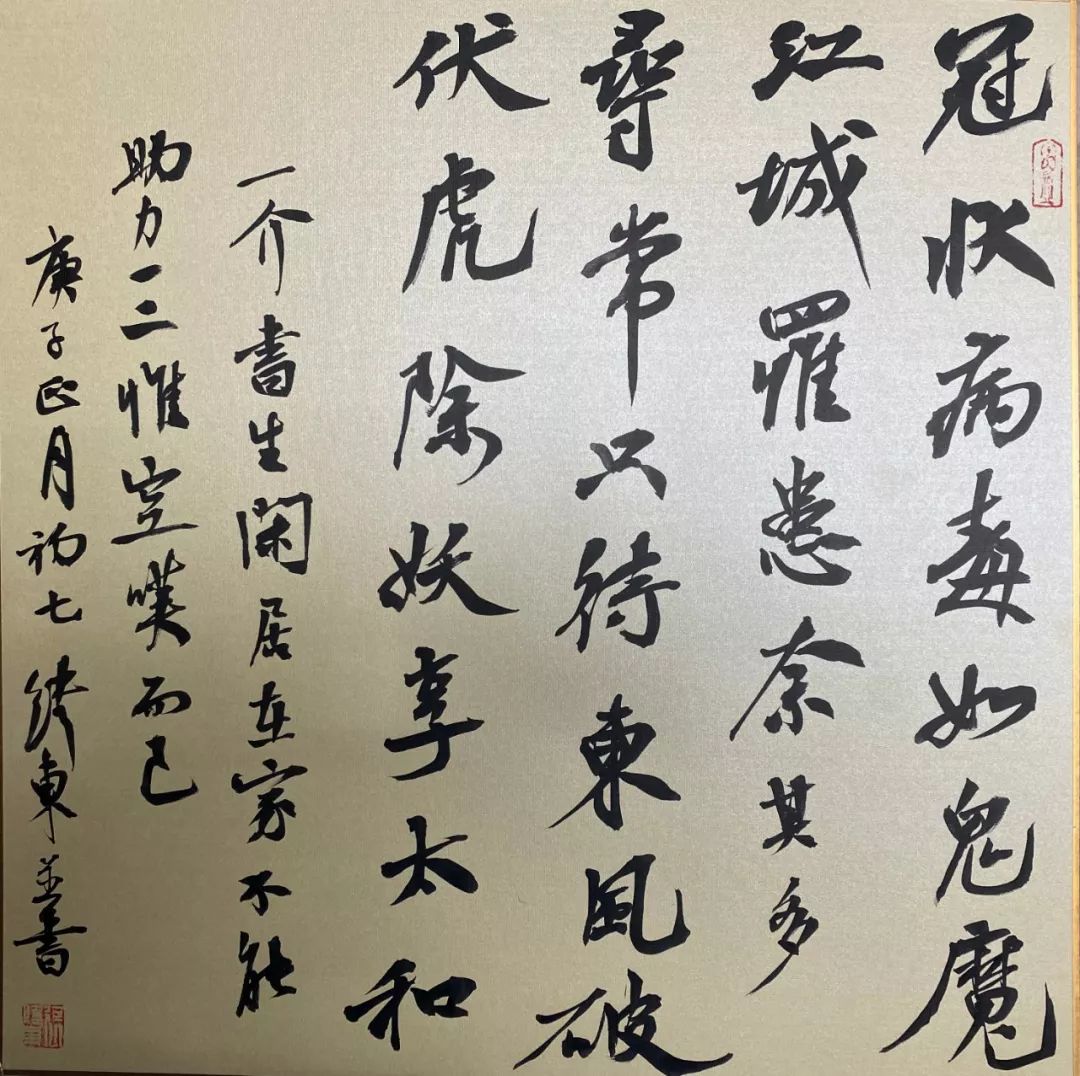 冠状病毒如鬼魔
江城罹患奈其多
尋常只待東風破
伏虎除妖享太和
一介書生閑居在家不能
助力一二惟空嘆而已
庚子正月初七 東並書